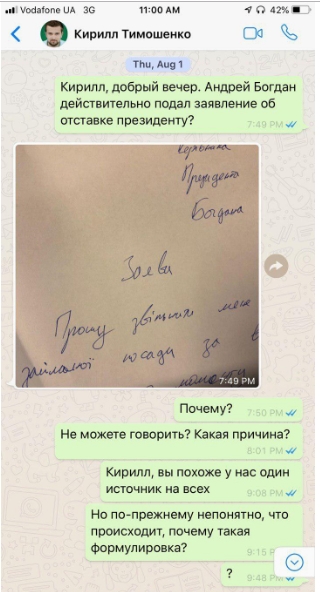 Vodafone UA 3G 11:00 AM 42%
Кирилл Тимошенко
Thu, Aug 1
Кирилл, добрый вечер. Андрей Богдан
действительно подал заявление об
отставке президенту?
7:49 PM
Керівника
Президента
Богдана
Заява
Прошу звільнити мене
займаної посади за
7:49 PM
Почему?
7:50 PM
Не можете говорить? Какая причина?
8:01 PM
Кирилл, вы похоже у нас один
источник на всех
9:08 PM
Но по-прежнему непонятно, что
происходит, почему такая
формулировка?
9:15
?
9:48 PM